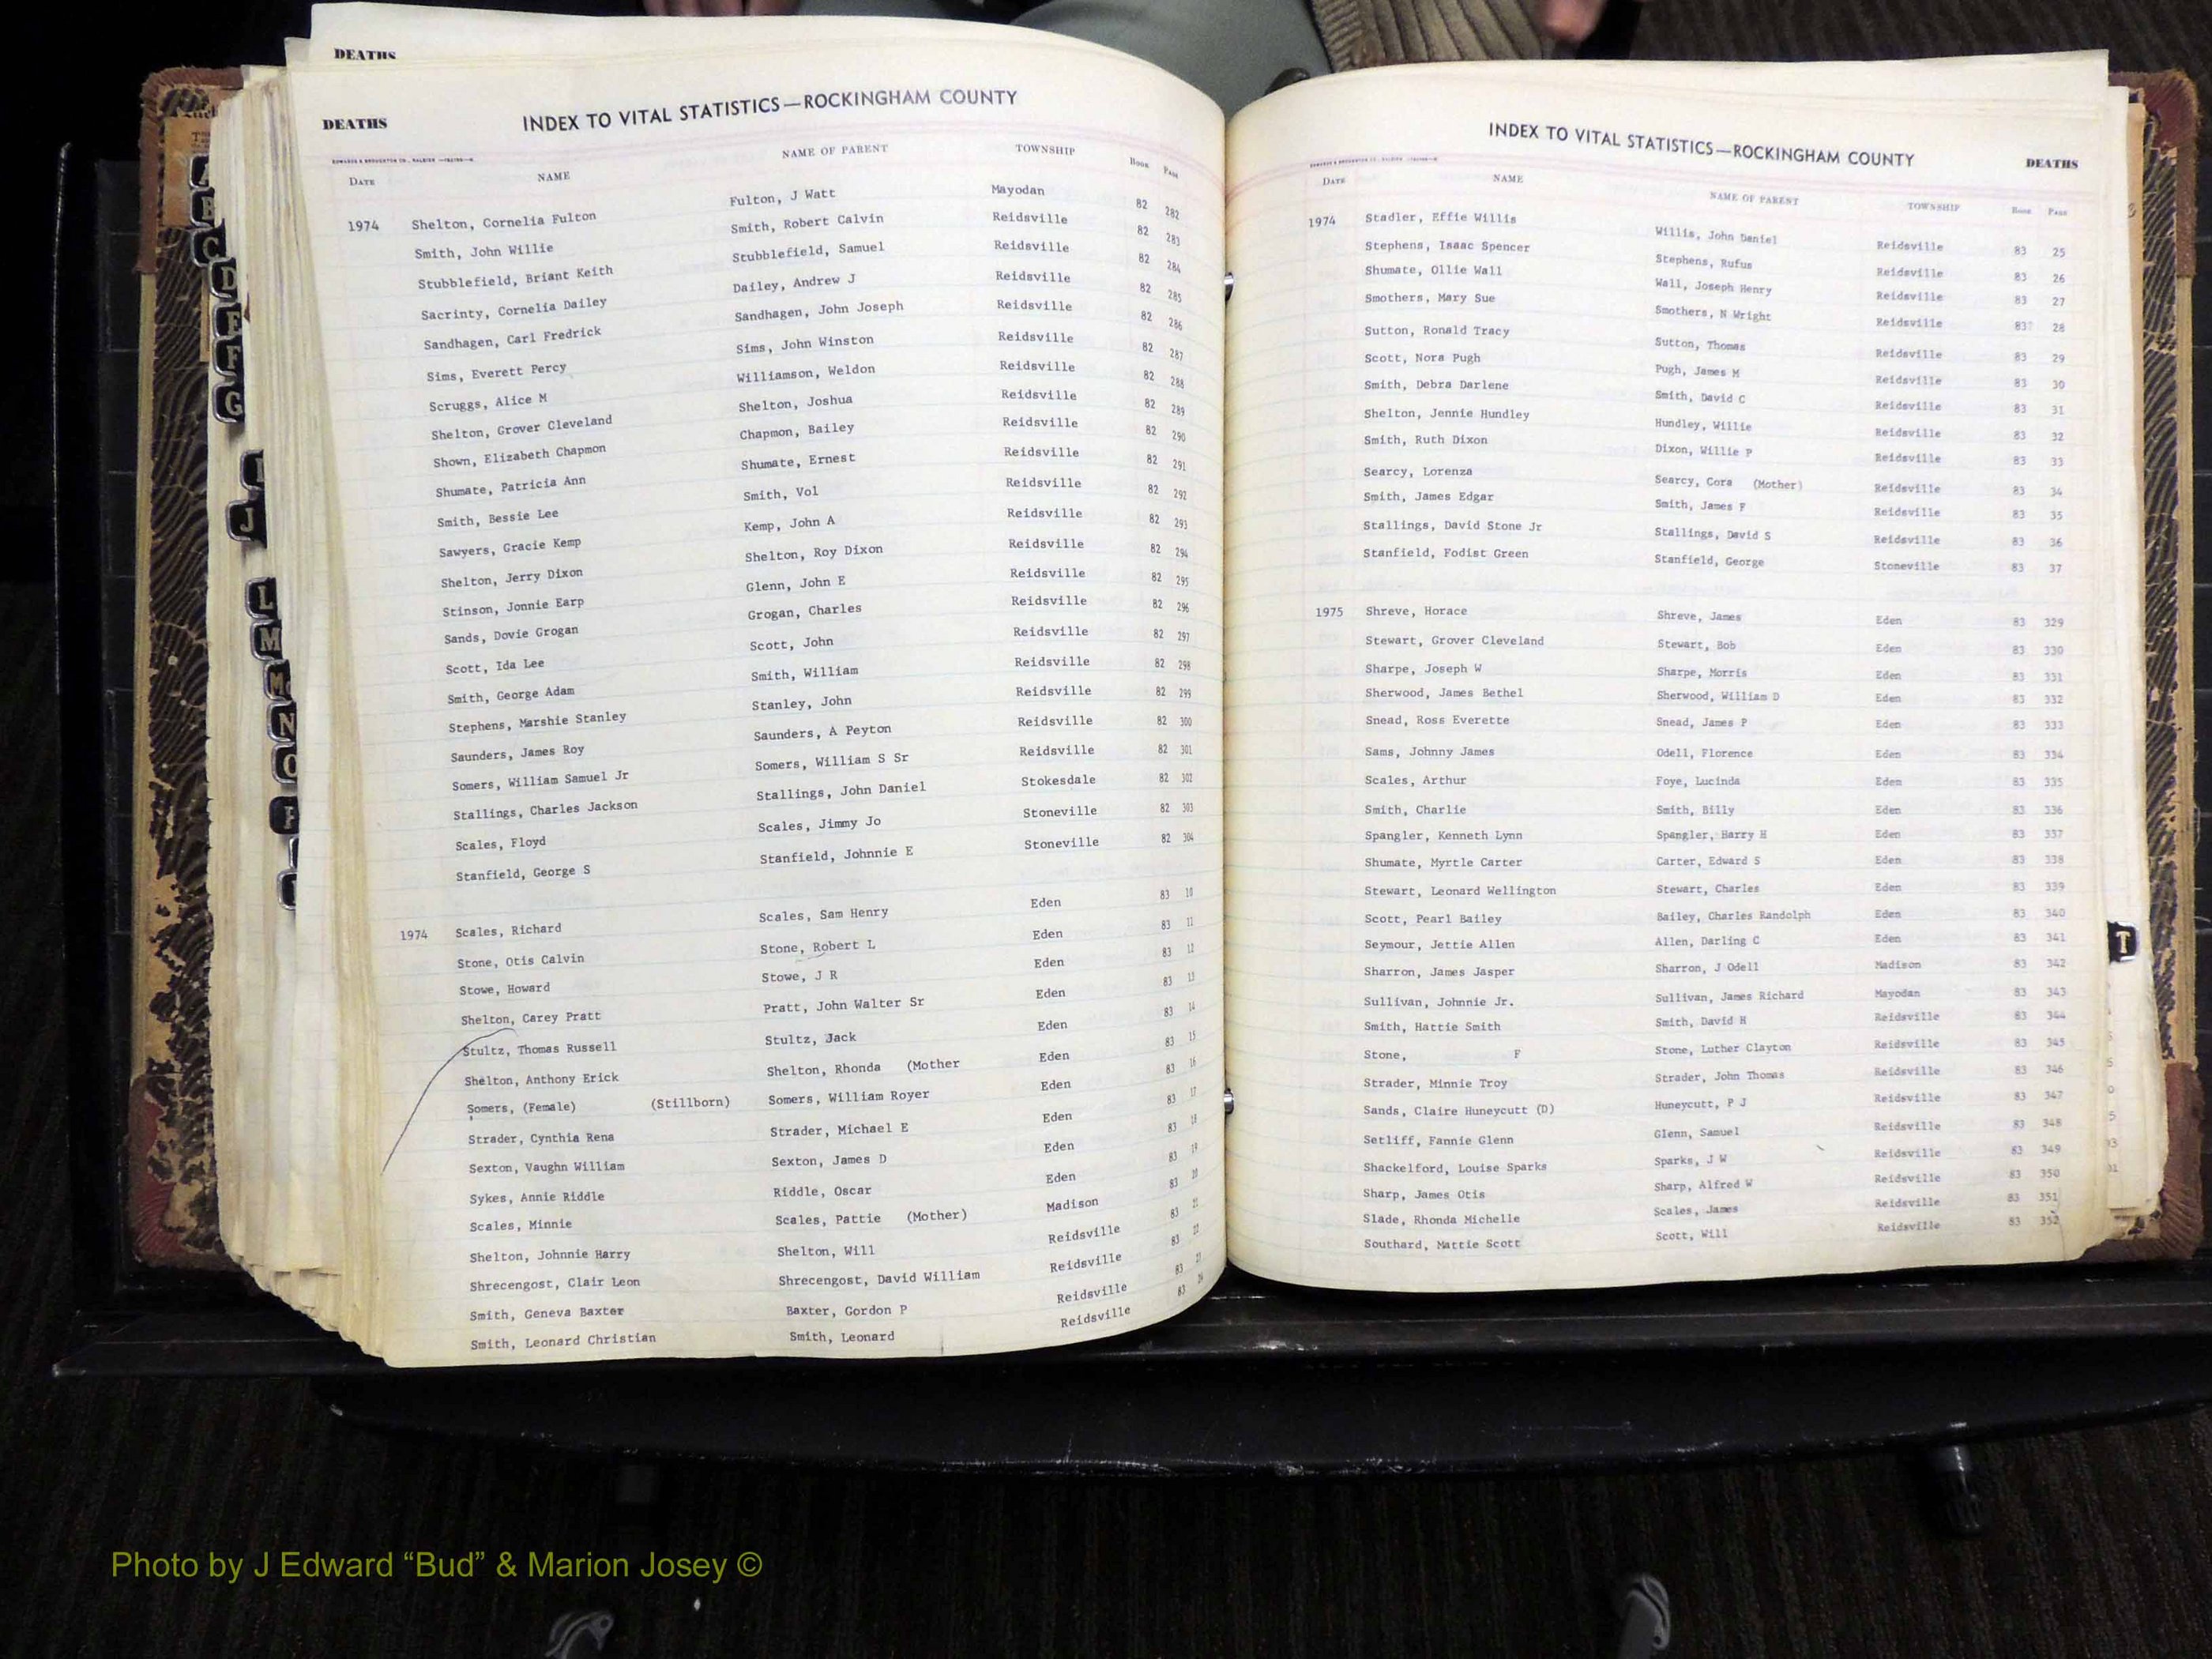 DEATHS
DEATHS
INDEX TO VITAL STATISTICS—ROCKINGHAM COUNTY
DATE NAME NAME OF PARENT TOWNSHIP BOOK PAGE
1974 Shelton, Cornelia Fulton Fulton, J Watt Mayodan 82 282
Smith, John Willie Smith, Robert Calvin Reidsville 82 283
Stubblefield, Briant Keith Stubblefield, Samuel Reidsville 82 284
Sacrinty, Cornelia Dailey Dailey, Andrew J Reidsville 82 285
Sandhagen, Carl Fredrick Sandhagen, John Joseph Reidsville 82 286
Sims, Everett Percy Sims, John Winston Reidsville 82 287
Scruggs, Alice M Williamson, Weldon Reidsville 82 288
Shelton, Grover Cleveland Shelton, Joshua Reidsville 82 289
Shown, Elizabeth Chapmon Chapmon, Bailey Reidsville 82 290
Shumate, Patricia Ann Shumate, Ernest Reidsville 82 291
Smith, Bessie Lee Smith, Vol Reidsville 82 292
Sawyers, Gracie Kemp Kemp, John A Reidsville 82 293
Shelton, Jerry Dixon Shelton, Roy Dixon Reidsville 82 294
Stinson, Jonnie Earp Glenn, John E Reidsville 82 295
Sands, Dovie Grogan Grogan, Charles Reidsville 82 296
Scott, Ida Lee Scott, John Reidsville 82 297
Smith, George Adam Smith, William Reidsville 82 298
Stephens, Marshie Stanley Stanley, John Reidsville 82 299
Saunders, James Roy Saunders, A Peyton Reidsville 82 300
Somers, William Samuel Jr Somers, William S Sr Reidsville 82 301
Stallings, Charles Jackson Stallings, John Daniel Stokesdale 82 302
Scales, Floyd Scales, Jimmy Jo Stoneville 82 303
Stanfield, George S Stanfield, Johnnie E Stoneville 82 304
1974 Scales, Richard Scales, Sam Henry Eden 83 10
Stone, Otis Calvin Stone, Robert L Eden 83 11
Stowe, Howard Stowe, J R Eden 83 12
Shelton, Carey Pratt Pratt, John Walter Sr Eden 83 13
Stultz, Thomas Russell Stultz, Jack Eden 83 14
Shelton, Anthony Erick Shelton, Rhonda (Mother Eden 83 15
Somers, (Female) (Stillborn) Somers, William Royer Eden 83 16
Strader, Cynthia Rena Strader, Michael E Eden 83 17
Sexton, Vaughn William Sexton, James D Eden 83 18
Sykes, Annie Riddle Riddle, Oscar Eden 83 19
Scales, Minnie Scales, Pattie (Mother) Madison 83 20
Shelton, Johnnie Harry Shelton, Will Reidsville 83 21
Shrecengost, Clair Leon Shrecengost, David William Reidsville 83 22
Smith, Geneva Baxter Baxter, Gordon P Reidsville 83 23
Smith, Leonard Christian Smith, Leonard Reidsville 83
INDEX TO VITAL STATISTICS—ROCKINGHAM COUNTY
DEATHS
DATE NAME NAME OF PARENT TOWNSHIP BOOK PAGE
1974 Stadler, Effie Willis Willis, John Daniel Reidsville 83 25
Stephens, Isaac Spencer Stephens, Rufus Reidsville 83 26
Shumate, Ollie Wall Wall, Joseph Henry Reidsville 83 27
Smothers, Mary Sue Smothers, N Wright Reidsville 83 28
Sutton, Ronald Tracy Sutton, Thomas Reidsville 83 29
Scott, Nora Pugh Pugh, James M Reidsville 83 30
Smith, Debra Darlene Smith, David C Reidsville 83 31
Shelton, Jennie Hundley Hundley, Willie Reidsville 83 32
Smith, Ruth Dixon Dixon, Willie P Reidsville 83 33
Searcy, Lorenza Searcy, Cora (Mother) Reidsville 83 34
Smith, James Edgar Smith, James F Reidsville 83 35
Stallings, David Stone Jr Stallings, David S Reidsville 83 36
Stanfield, Fodist Green Stanfield, George Stoneville 83 37
1975 Shreve, Horace Shreve, James Eden 83 329
Stewart, Grover Cleveland Stewart, Bob Eden 83 330
Sharpe, Joseph W Sharpe, Morris Eden 83 331
Sherwood, James Bethel Sherwood, William D Eden 83 332
Snead, Ross Everette Snead, James P Eden 83 333
Sams, Johnny James Odell, Florence Eden 83 334
Scales, Arthur Foye, Lucinda Eden 83 335
Smith, Charlie Smith, Billy Eden 83 336
Spangler, Kenneth Lynn Spangler, Harry H Eden 83 337
Shumate, Myrtle Carter Carter, Edward S Eden 83 338
Stewart, Leonard Wellington Stewart, Charles Eden 83 339
Scott, Pearl Bailey Bailey, Charles Randolph Eden 83 340
Seymour, Jettie Allen Allen, Darling C Eden 83 341
Sharron, James Jasper Sharron, J Odell Madison 83 342
Sullivan, Johnnie Jr. Sullivan, James Richard Mayodan 83 343
Smith, Hattie Smith Smith, David H Reidsville 83 344
Stone, F Stone, Luther Clayton Reidsville 83 345
Strader, Minnie Troy Strader, John Thomas Reidsville 83 346
Sands, Claire Huneycutt (D) Huneycutt, P J Reidsville 83 347
Setliff, Fannie Glenn Glenn, Samuel Reidsville 83 348
Shackelford, Louise Sparks Sparks, J W Reidsville 83 349
Sharp, James Otis Sharp, Alfred W Reidsville 83 350
Slade, Rhonda Michelle Scales, James Reidsville 83 351
Southard, Mattie Scott Scott, Will Reidsville 83 352
D
F
G
J
L
M
N
T
Photo by J Edward “Bud” & Marion Josey ©